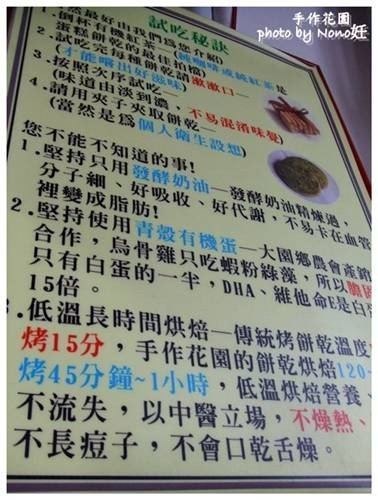 手作花園
photo by Nono妊
試吃秘訣
然最好由我們為您介紹)
1.倒杯有機紅茶—(純咖啡或純紅茶是
蛋糕餅乾的最佳拍檔)
2.試吃完每種餅乾請漱漱口—
(才能嚐出好滋味)
3.按照次序試吃—
(味道由淡到濃,不易混淆味覺)
4.請用夾子夾取餅乾—
(當然是為個人衛生設想)
您不能不知道的事!
1.堅持只用發酵奶油—發酵奶油精煉過,
分子細、好吸收、好代謝,不易卡在血管
裡變成脂肪!
2.堅持使用青殼有機蛋—大園鄉農會產銷
合作,烏骨雞只吃蝦粉綠藻,所以膽固
只有白蛋的一半,DHA、維他命E是白
15倍。
3.低溫長時間烘焙—傳統烤餅乾溫度
烤15分,手作花園的餅乾烘焙120-
烤45分鐘~1小時,低溫烘焙營養、
不流失,以中醫立場,不燥熱、
不長痘子,不會口乾舌燥。